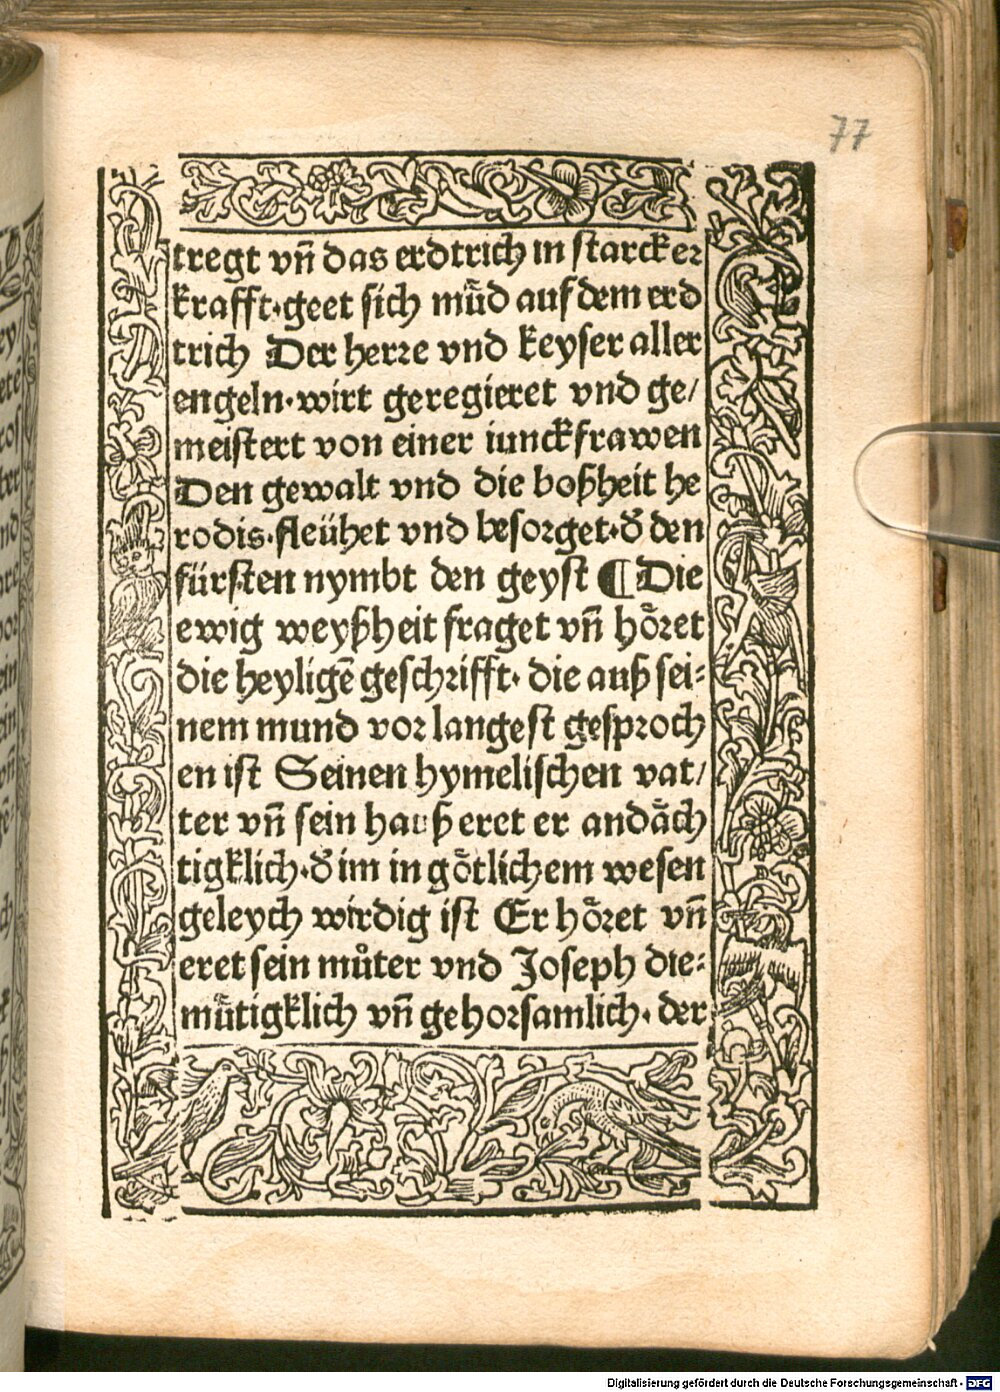 77
tregt vn̄ das erdtrich in starcker
krafft·geet sich mu̇̄d auf dem erd
trich Der herre vnd keyser aller
engeln·wirt geregieret vnd ge/
meistert von einer iunckfrawen
Den gewalt vnd die boßheit he
rodis·fleühet vnd besorget·d̕ den
fürsten nymbt den geyst ¶ Die
ewig weyßheit fraget vn̄ hoͤret
die heyligē geschrifft· die auß sei⸗
nem mund vor langest gesproch
en ist Seinen hymelischen vat/
ter vn̄ sein hauß eret er andaͤch
tigklich·d̕ im in goͤtlichem wesen
geleych wirdig ist Er hoͤret vn̄
eret sein muͦter vnd Joseph die⸗
muͤtigklich vn̄ gehorsamlich· der
Digitalisierung gefördert durch die Deutsche Forschungsgemeinschaft - DFG